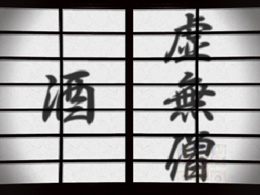 虚無僧
酒